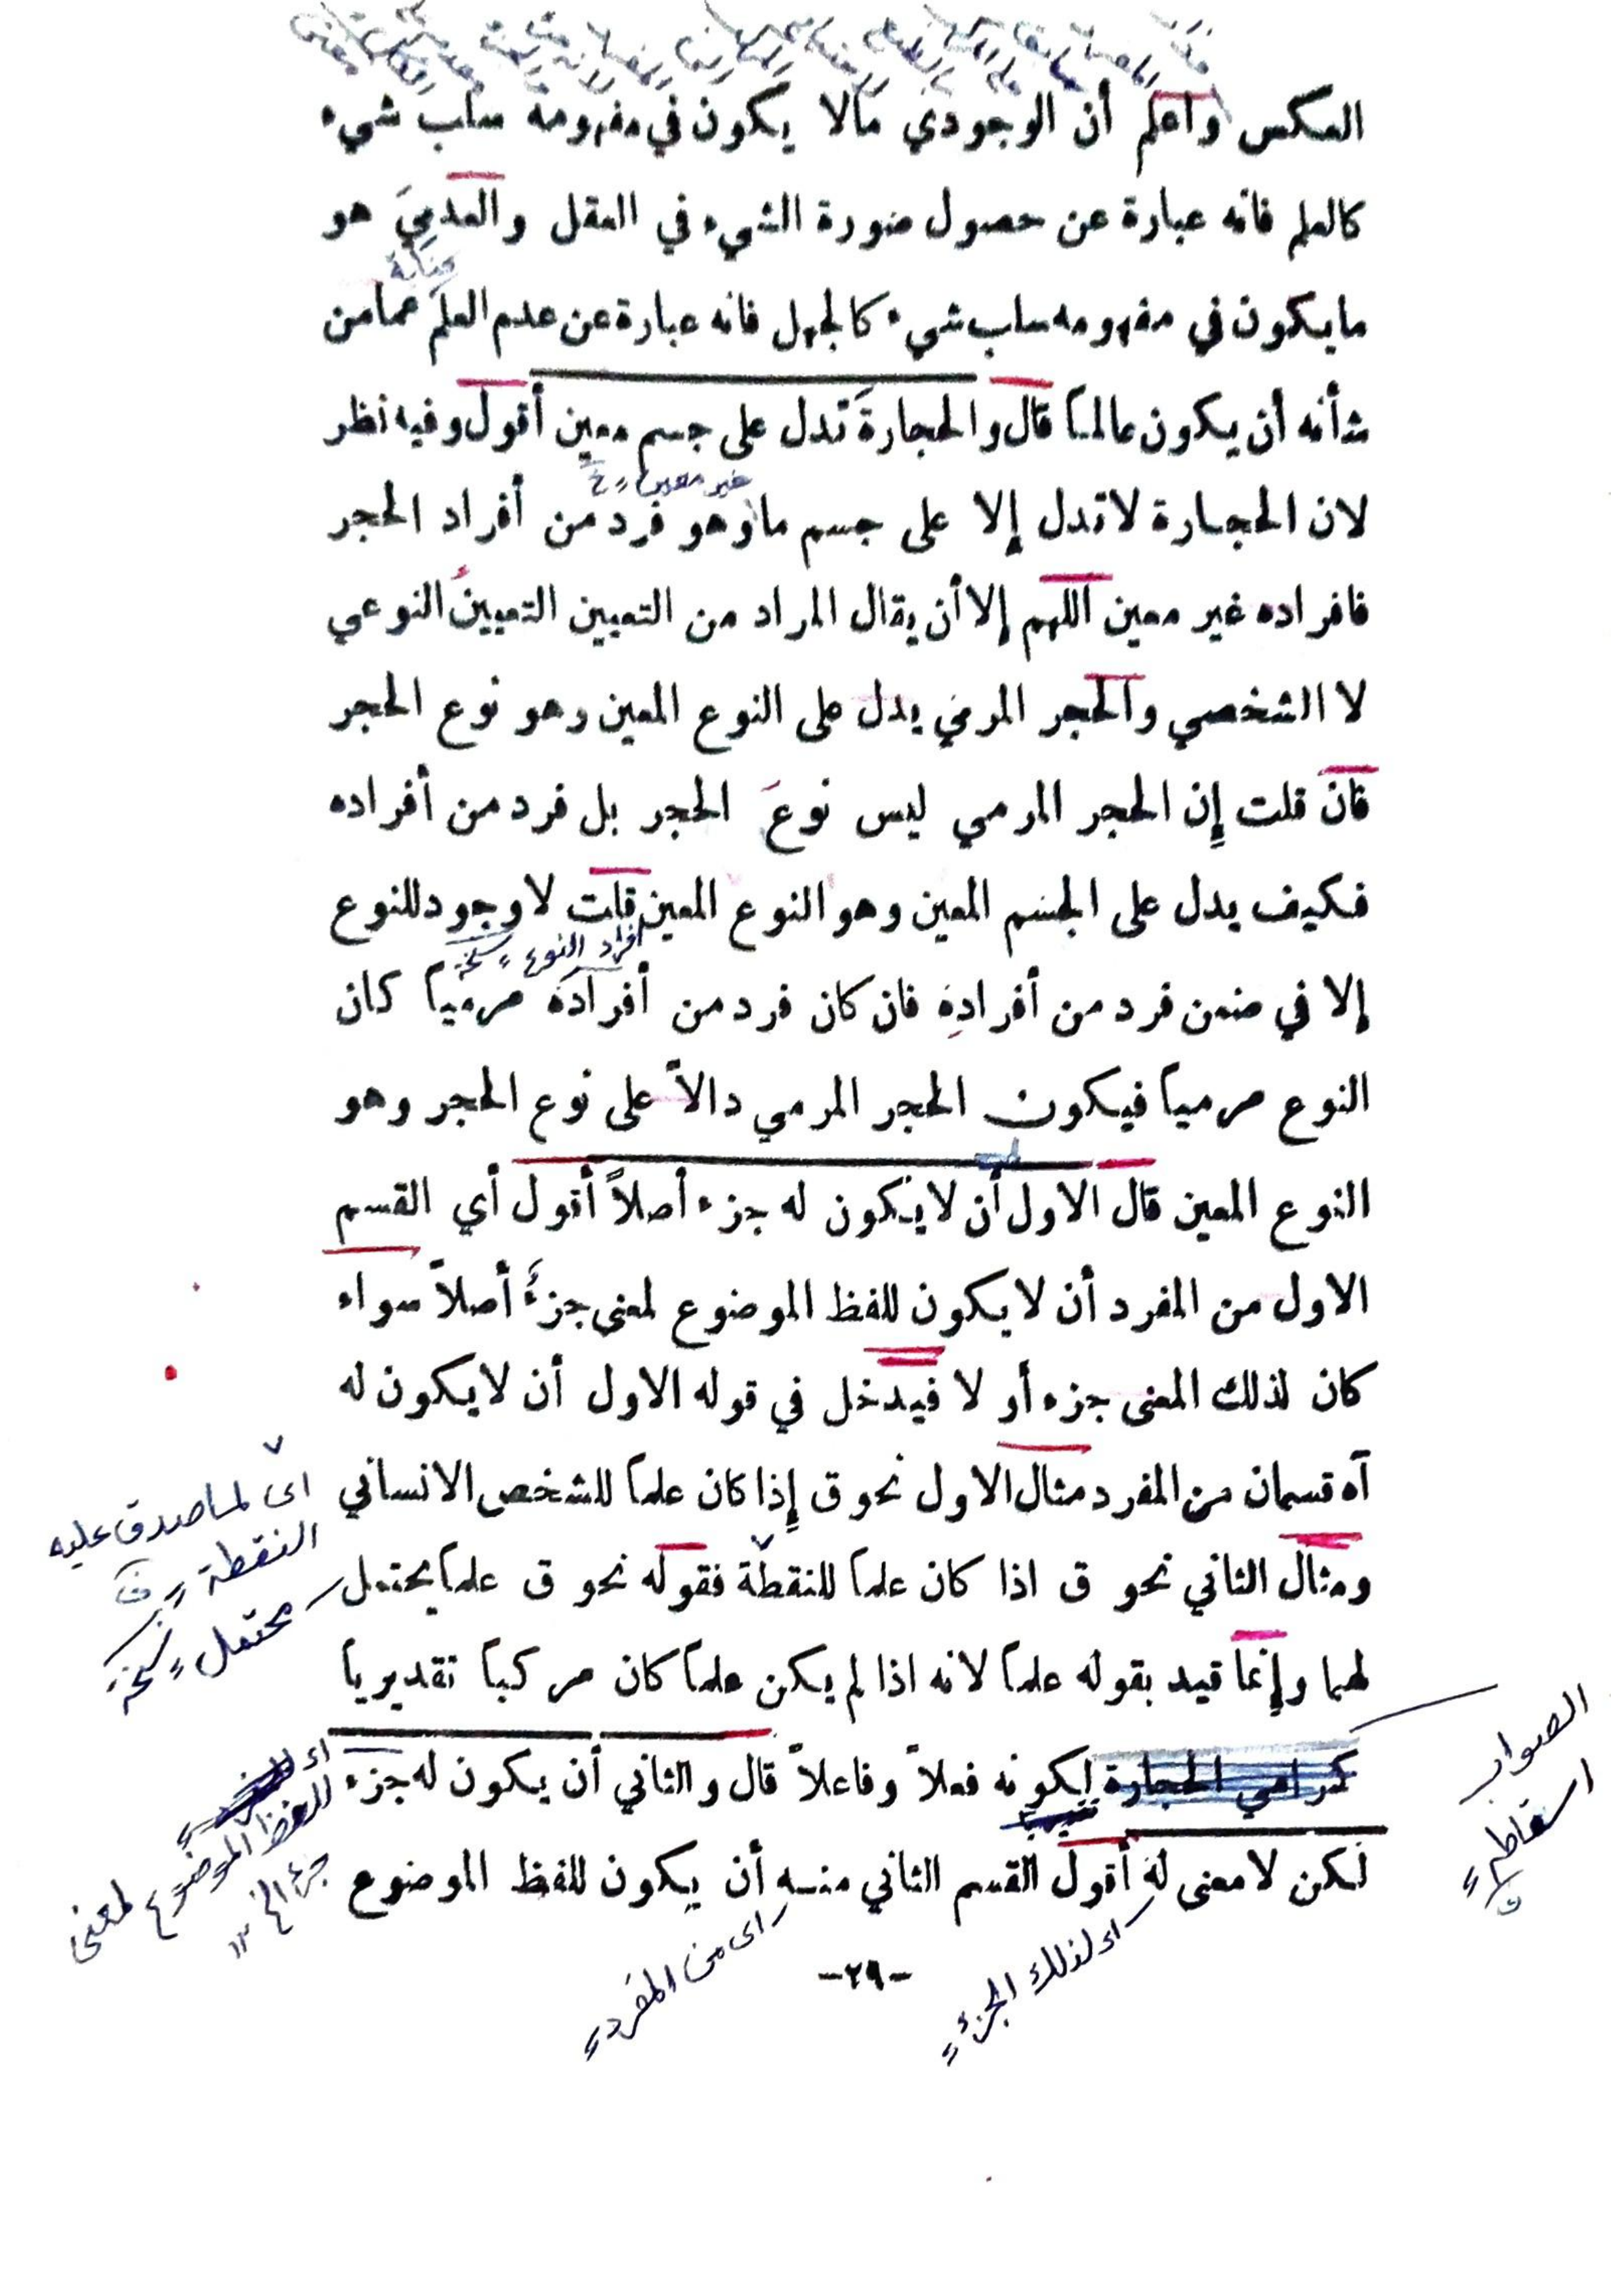 العكس واعلم أن الوجودي مالا يكون في مفهومه سلب شيء
كالعلم فانه عبارة عن حصول صورة الشيء في العقل والعدميَ هو
ما يكون في مفهومه سلب شيء كالجهل فانه عبارة عن عدم العلم عما من
شأنه أن يكون عالماً قال والحجارةَ تدل على جسم معين أقول وفيه نظر
غير معين ؞ خ
لان الحجارة لا تدل إلا على جسم ما وهو فرد من أفراد الحجر
فافراده غير معين اللهم إلا أن يقال المراد من التعيين التعيينُ النوعي
لا الشخصي والحجر المرمي يدل على النوع المعين وهو نوع الحجر
فان قلت إِن الحجر المرمي ليس نوعَ الحجر بل فرد من أفراده
فكيف يدل على الجسم المعين وهو النوع المعين قلت لا وجود للنوع
افراد النوع ؞ نسخة
إلا في ضمن فرد من أفرادِه فان كان فرد من أفراده مرمياً كان
النوع مرمياً فيكون الحجر المرمي دالاً على نوع الحجر وهو
النوع المعين قال الاول أن لا يكون له جزء أصلاً أقول أي القسم
الاول من المفرد أن لا يكون للفظ الموضوع لمعنى جزءٌ أصلاً سواء
كان لذلك المعنى جزء أو لا فيدخل في قوله الاول أن لا يكون له
آه قسمان من المفرد مثال الاول نحو ق إِذا كان علماً للشخص الانساني
ومثال الثاني نحو ق اذا كان علماً للنقطة فقوله نحو ق علماً يحتمل
لهما وإِنما قيد بقوله علماً لانه اذا لم يكن علماً كان مركباً تقديرياً
كرامي الحجارة لكونه فعلاً وفاعلاً قال والثاني أن يكون له جزء
لكن لا معنى له أقول القسم الثاني منه أن يكون للفظ الموضوع
اى لما صدق عليه
النقطة
محتمل ؞ نسخة
للفظ الموضوع لمعنى
جزء الخ ١٢
الصواب
اسقاطه
اى من المفرد
اى لذلك الجزء
-٢٩-